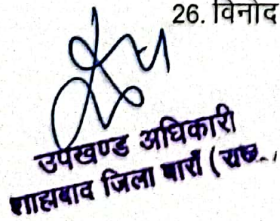 26. विनोद
उपखण्ड अधिकारी
शाहाबाद जिला बाराँ (राज.